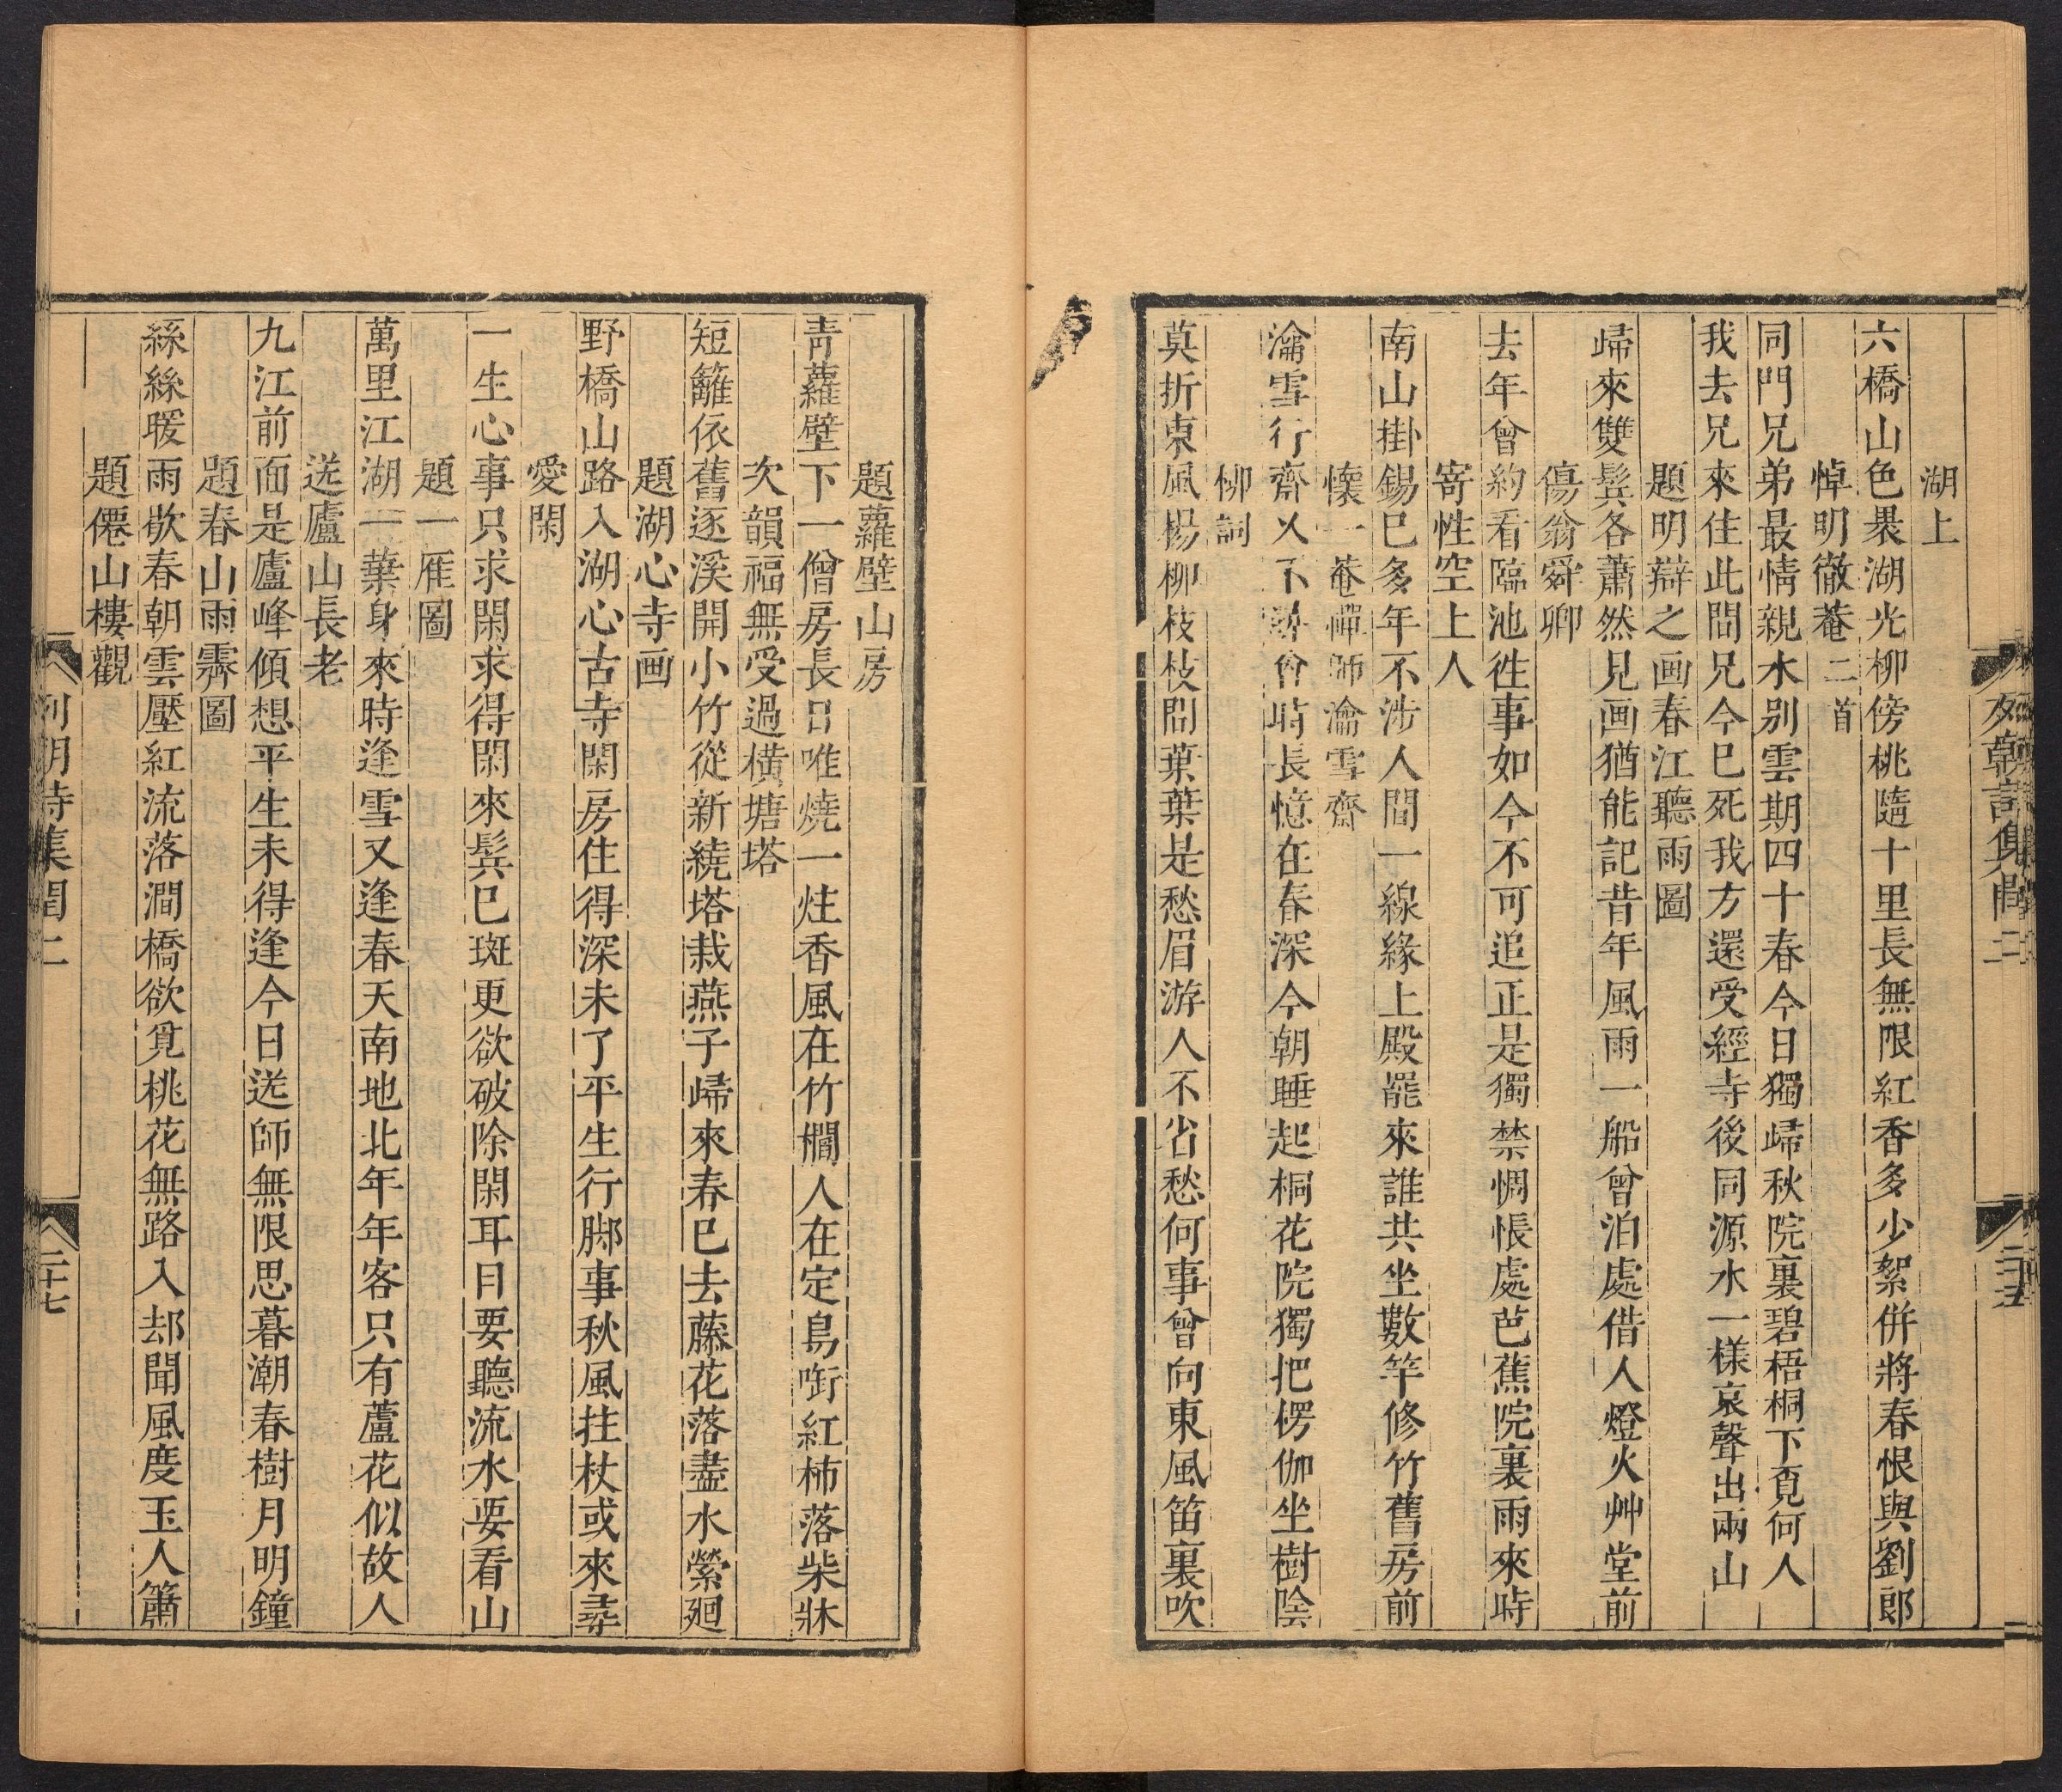 湖上
六橋山色裹湖光柳傍桃隨十里長無限紅香多少絮併將春恨與劉郎
悼明徹菴二首
同門兄弟最情親水別雲期四十春今日獨歸秋院裏碧梧桐下覓何人
我去兄來住此間兄今巳死我方還受經寺後同源水一樣哀聲出兩山
題明辯之画春江聽雨圖
歸來雙鬂各蕭然見画猶能記昔年風雨一船曾泊處借人燈火艸堂前
傷翁舜卿
去年曾約看臨池徃事如今不可追正是獨禁惆悵處芭蕉院裏雨來時
寄性空上人
南山掛錫巳多年不涉人間一線緣上殿罷來誰共坐數竿修竹舊房前
懷一菴禪師瀹雪齋
瀹雪行齋火下尋會時長憶在春深今朝睡起桐花院獨把楞伽坐樹陰
柳詞
莫折東風楊柳枝枝問葉葉是愁眉游人不省愁何事曾向東風笛裏吹
列朝詩集閏二
題蘿壁山房
靑蘿壁下一僧房長日唯燒一炷香風在竹櫩人在定鳥啣紅柿落柴牀
次韻福無受過橫塘塔
短籬依舊逐溪開小竹從新繞塔栽燕子歸來春巳去藤花落盡水縈廻
題湖心寺画
野橋山路入湖心古寺閑房住得深未了平生行脚事秋風拄杖或來尋
愛閑
一生心事只求閑求得閑來鬂巳斑更欲破除閑耳目要聽流水要看山
題一雁圖
萬里江湖一葉身來時逢雪又逢春天南地北年年客只有蘆花似故人
送廬山長老
九江前面是廬峰傾想平生未得逢今日送師無限思暮潮春樹月明鐘
題春山雨霽圖
絲絲暖雨散春朝雲壓紅流落澗橋欲覓桃花無路入却聞風度玉人簫
題僊山樓觀
列朝詩集閏二
二十七